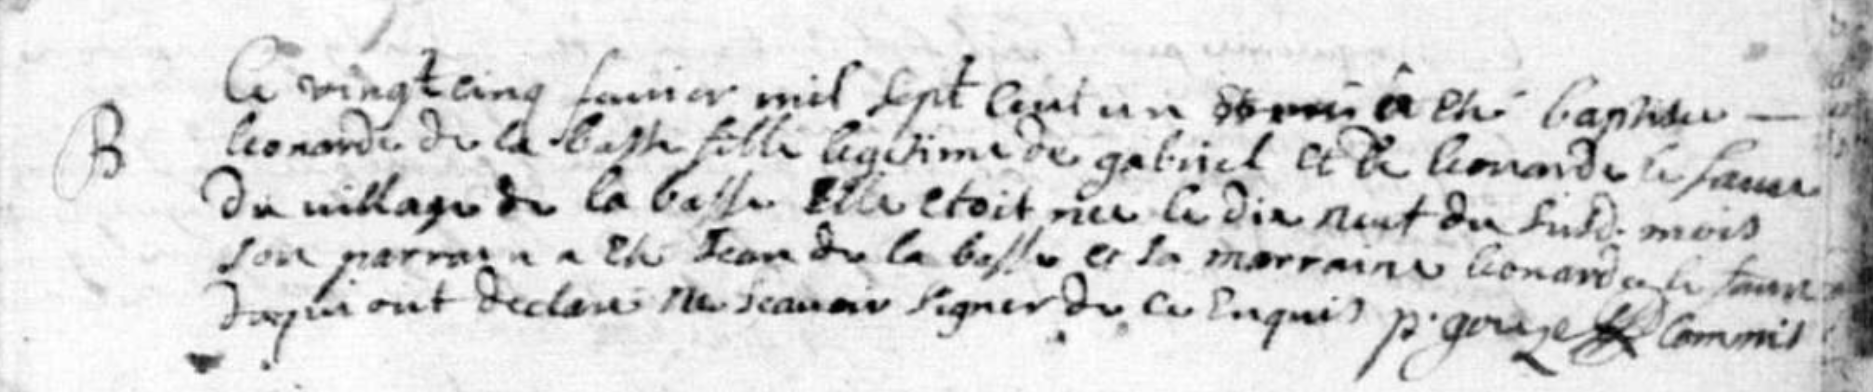 Le vingt cinq fauier mil sept cent un a ete baptisee
B leonarde de la basse fille legitime de gabriel et de leonarde le faure
du uillage de la basse Elle etoit nee le dix neuf du susd. mois
son parrain a ete Jean de la basse et sa marraine leonarde le faure
qui ont declare ne scauoir signer de ce Enquis p. gouze Commis